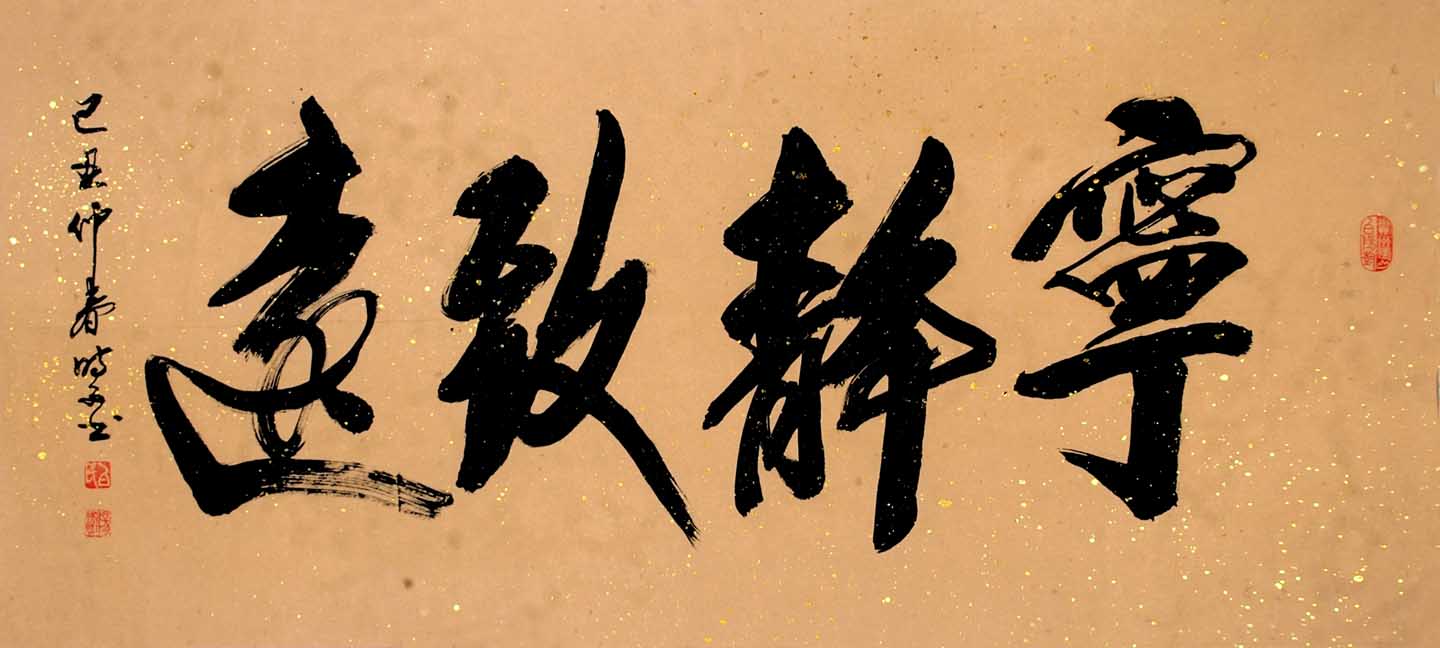 寧靜致遠
己丑仲春時文書